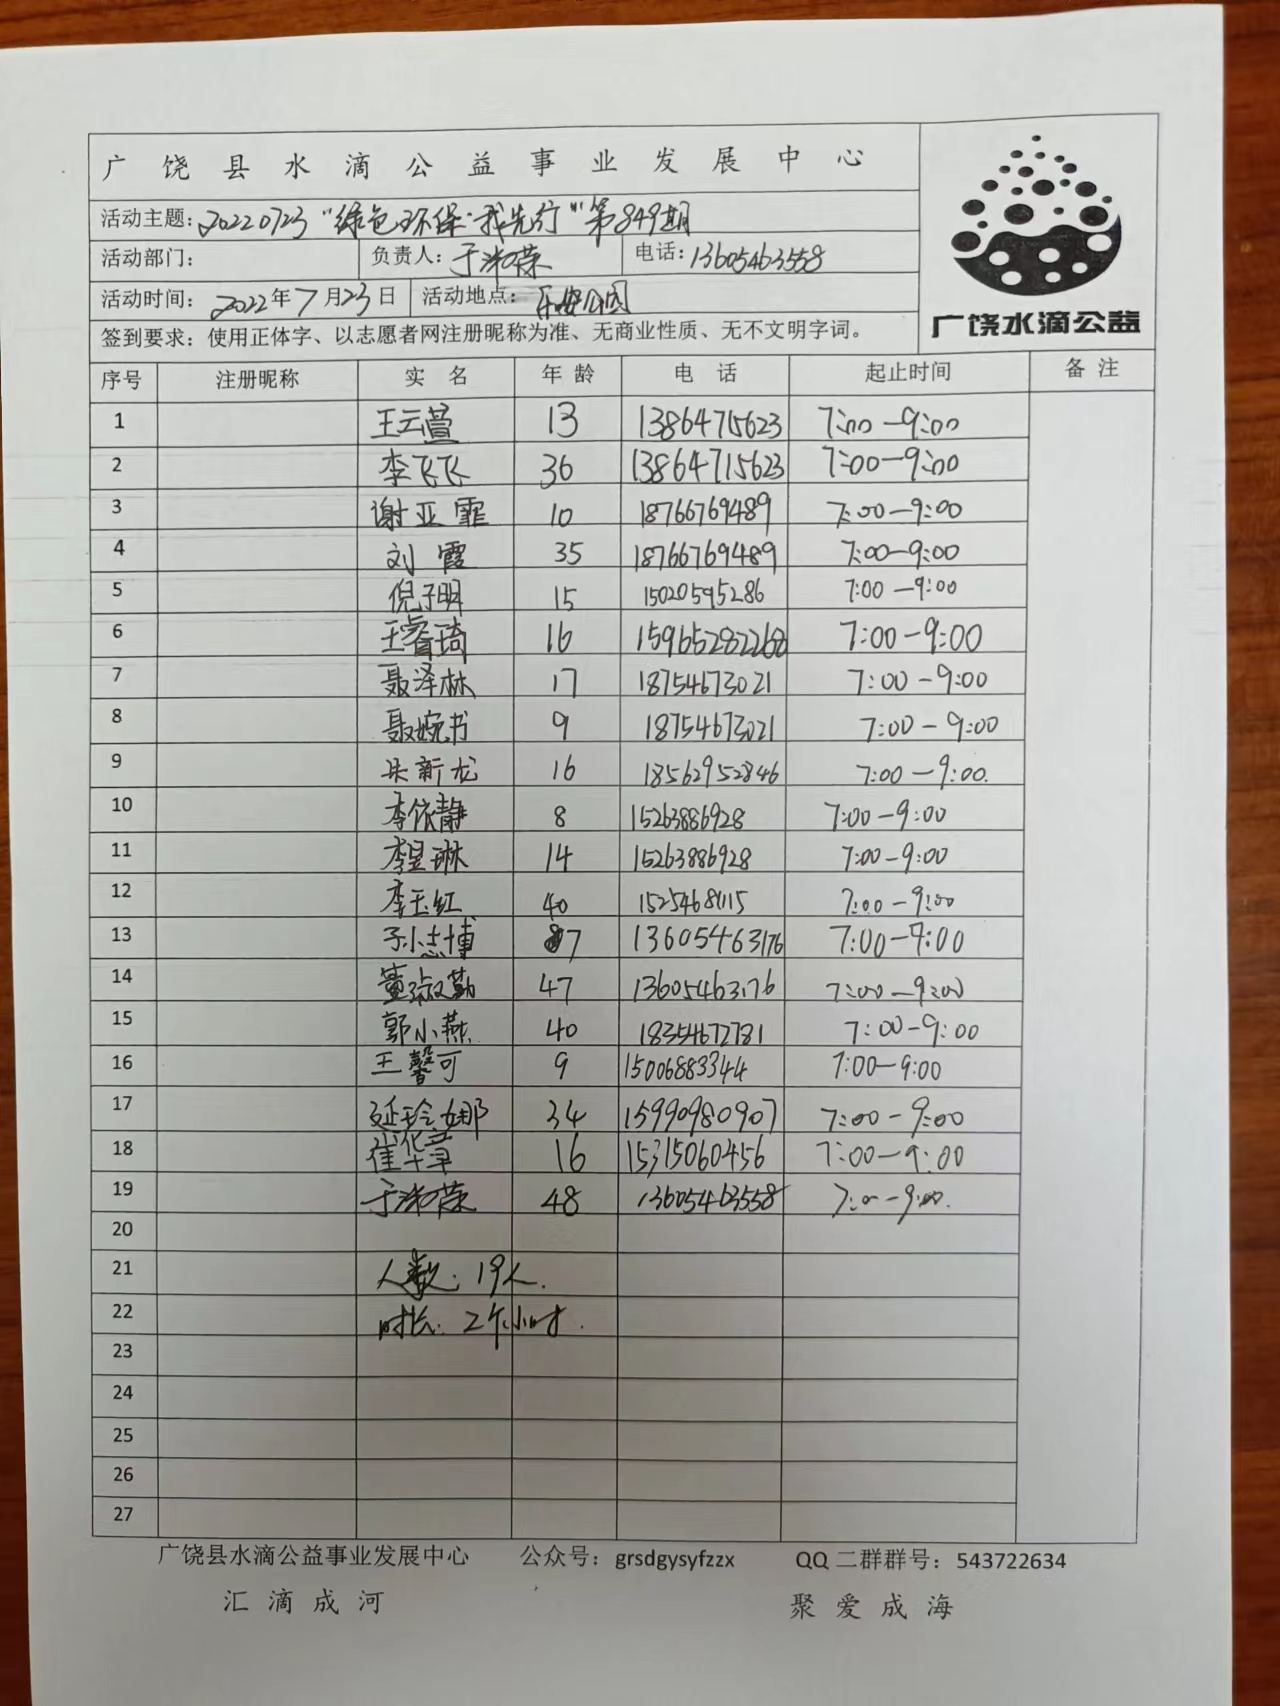 广饶县水滴公益事业发展中心
广饶水滴公益
活动主题: 20220723 "绿色环保·我先行" 第849期
活动部门: 负责人: 于洪荣 电话: 13605463558
活动时间: 2022年7月23日 活动地点: 乐安公园
签到要求: 使用正体字、以志愿者网注册昵称为准、无商业性质、无不文明字词。
序号 注册昵称 实名 年龄 电话 起止时间 备注
1 王云萱 13 13864715623 7:00-9:00
2 李飞飞 36 13864715623 7:00-9:00
3 谢亚霏 10 18766769489 7:00-9:00
4 刘霞 35 18766769489 7:00-9:00
5 倪子明 15 15020595286 7:00-9:00
6 王睿琦 16 15965282268 7:00-9:00
7 聂泽林 17 18754673021 7:00-9:00
8 聂婉书 9 18754673021 7:00-9:00
9 新龙 16 18562952846 7:00-9:00.
10 李依静 8 15263886928 7:00-9:00
11 李昱琳 14 15263886928 7:00-9:00
12 李玉红 40 7:00-9:00
13 孙志博 7 13605463176 7:00-9:00
14 董淑勤 47 13605463176 7:00-9:00
15 郭小燕 40 18354672781 7:00-9:00
16 王馨可 9 15006883344 7:00-9:00
17 延玲娜 34 15990980907 7:00-9:00
18 崔华章 16 15315060456 7:00-9:00
19 于洪荣 48 13605463558 7:00-9:00.
20
21 人数: 19人.
22 时长: 2个小时.
23
24
25
26
27
广饶县水滴公益事业发展中心 公众号: grsdgysyfzzx QQ二群群号: 543722634
汇滴成河 聚爱成海